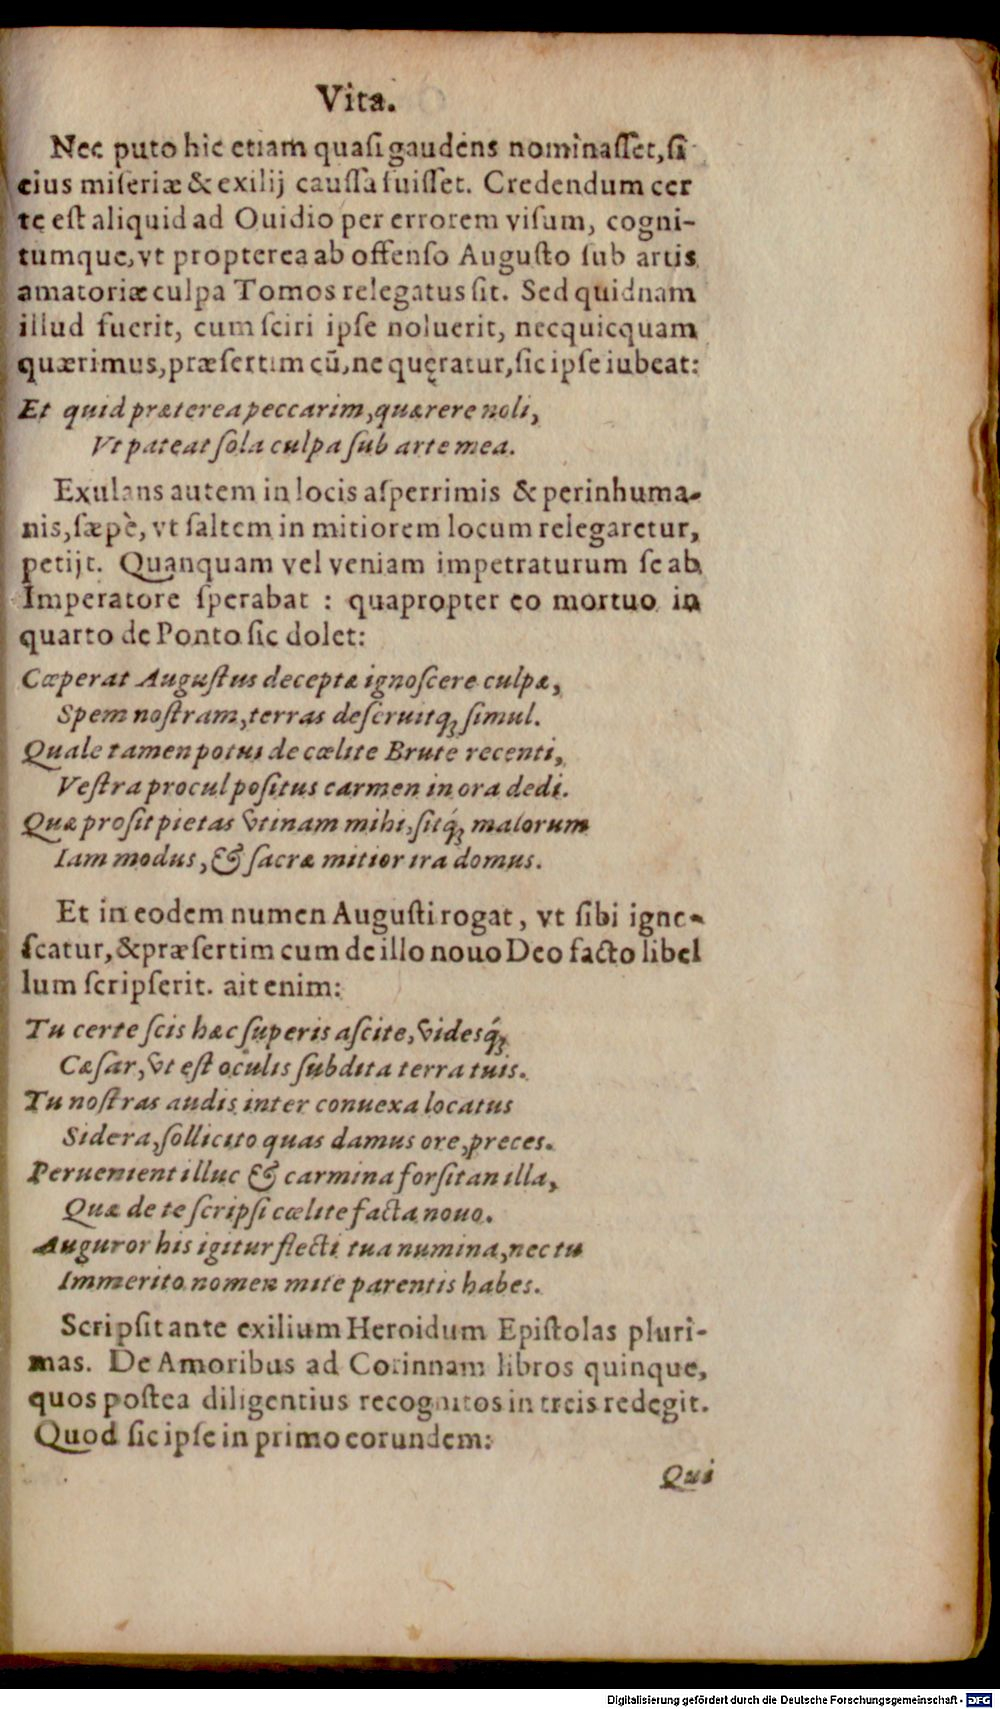 Vita.
Nec puto hic etiam quasi gaudens nominasset, si
eius miseriæ & exilij caussa fuisset. Credendum cer
te est aliquid ad Ouidio per errorem visum, cogni-
tumque, vt propterea ab offenso Augusto sub artis
amatoriæ culpa Tomos relegatus sit. Sed quidnam
illud fuerit, cum sciri ipse noluerit, necquicquam
quærimus, præsertim cū, ne quęratur, sic ipse iubeat:
Et quid præterea peccarim, quærere noli,
Vt pateat sola culpa sub arte mea.
Exulans autem in locis asperrimis & perinhuma-
nis, sæpè, vt saltem in mitiorem locum relegaretur,
petijt. Quanquam vel veniam impetraturum se ab
Imperatore sperabat : quapropter eo mortuo in
quarto de Ponto sic dolet:
Cœperat Augustus deceptæ ignoscere culpæ,
Spem nostram, terras deseruitq́; simul.
Quale tamen potui de cœlite Brute recenti,
Vestra procul positus carmen in ora dedi.
Quæ prosit pietas vtinam mihi, sitq́; malorum
Iam modus, & sacræ mitior ira domus.
Et in eodem numen Augusti rogat, vt sibi igno-
scatur, & præsertim cum de illo nouo Deo facto libel
lum scripserit. ait enim:
Tu certe scis hæc superis ascite, videsq́;
Cæsar, vt est oculis subdita terra tuis.
Tu nostras audis inter conuexa locatus
Sidera, sollicito quas damus ore, preces.
Peruenient illuc & carmina forsitan illa,
Quæ de te scripsi cœlite facta nouo.
Auguror his igitur flecti tua numina, nec tu
Immerito nomen mite parentis habes.
Scripsit ante exilium Heroidum Epistolas pluri-
mas. De Amoribus ad Corinnam libros quinque,
quos postea diligentius recognitos in treis redegit.
Quod sic ipse in primo eorundem:
Qui
Digitalisierung gefördert durch die Deutsche Forschungsgemeinschaft - DFG